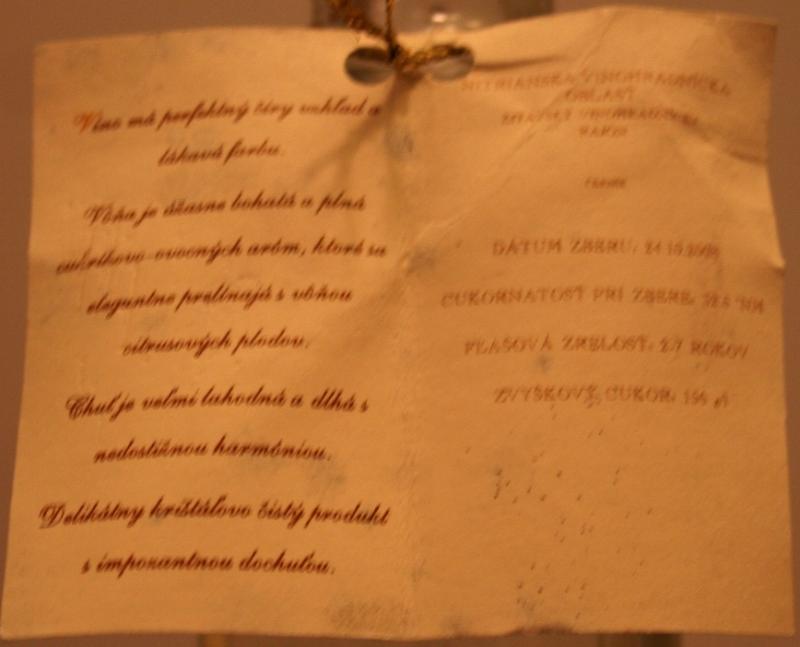 Víno má perfektný číry vzhľad a
lákavú farbu.
Vôňa je úžasne bohatá a plná
cukríkovo-ovocných aróm, ktoré sa
elegantne prelínajú s vôňou
citrusových plodov.
Chuť je veľmi lahodná a dlhá s
nedostižnou harmóniou.
Delikátny krištáľovo čistý produkt
s impozantnou dochuťou.
NITRIANSKA VINOHRADNÍCKA
OBLASŤ
VINOHRADNÍCKY
RAJÓN
DÁTUM ZBERU:
CUKORNATOSŤ PRI ZBERE: °NM
FĽAŠOVÁ ZRELOSŤ: ROKOV
ZVYŠKOVÝ CUKOR: